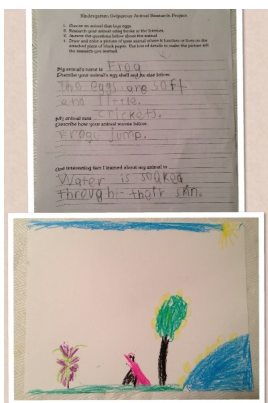 Kindergarten Oviparous Animal Research Project
1. Choose an animal that lays eggs.
2. Research your animal using books or the internet.
3. Answer the questions below about the animal.
4. Draw and color a picture of your animal where it hatches or lives on the
attached piece of blank paper. Use lots of details to make the picture tell
the
My animal's name is Frog
Describe your animal's egg shell and its size below.
The eggs are soft
and little.
My animal eats crickets.
Describe how your animal moves below.
Frogs jump.
One interesting fact I learned about my animal is
Water is soaked
through their skin.